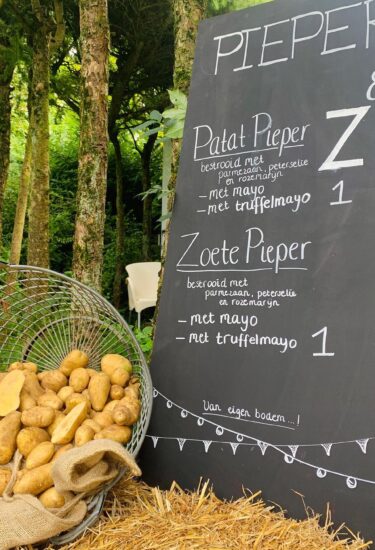 PIEPER
&
Z
Patat Pieper
bestrooid met
parmezaan, peterselie
en rozemarijn
– met mayo
– met truffelmayo 1
Zoete Pieper
bestrooid met
parmezaan, peterselie
en rozemarijn
– met mayo
– met truffelmayo 1
Van eigen bodem...!